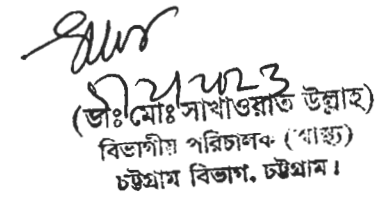 (ডাঃ মোঃ সাখাওয়াত উল্লাহ)
বিভাগীয় পরিচালক (স্বাস্থ্য)
চট্টগ্রাম বিভাগ, চট্টগ্রাম।